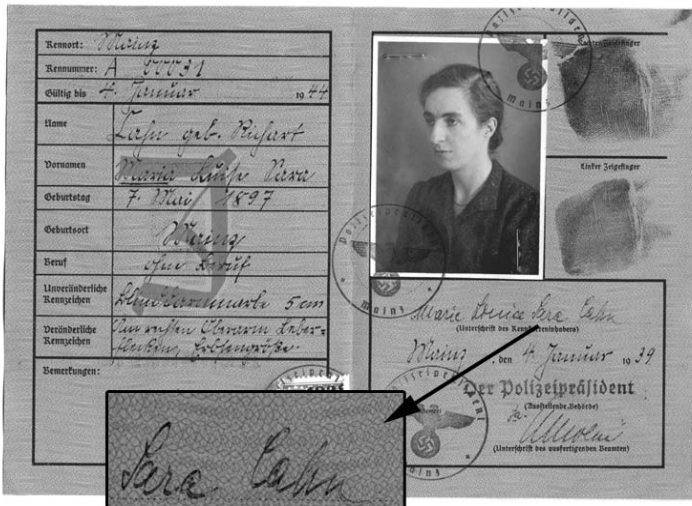 Kennort: Mainz
Kennnummer: A 00031
Gültig bis 4. Januar 1944
Name Cahn geb. Richart
Vornamen Maria Luise Sara
Geburtstag 7. Mai 1897
Geburtsort Mainz
Beruf ohne Beruf
Unveränderliche Kennzeichen 5 cm
Veränderliche Kennzeichen Am rechten Oberarm Leber-
flecken, Erbsengröße
Bemerkungen:
Polizeipräsident
Mainz
Rechter Zeigefinger
Linker Zeigefinger
Polizeipräsident
Mainz
Marie Louise Sara Cahn
(Unterschrift des Kennkarteninhabers)
Mainz, den 4. Januar 1939
Der Polizeipräsident
(Ausstellende Behörde)
(Unterschrift des ausfertigenden Beamten)
Polizeipräsident
Mainz
Sara Cahn